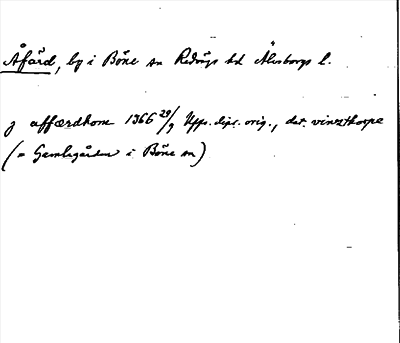 Åfärd, by i Böne sn Redvägs hd Älvsborgs l.
j affærdhom 1366 29/9 Upps. dipl. orig., dat. vinzthorpe
(= Gamlegården i Böne sn)